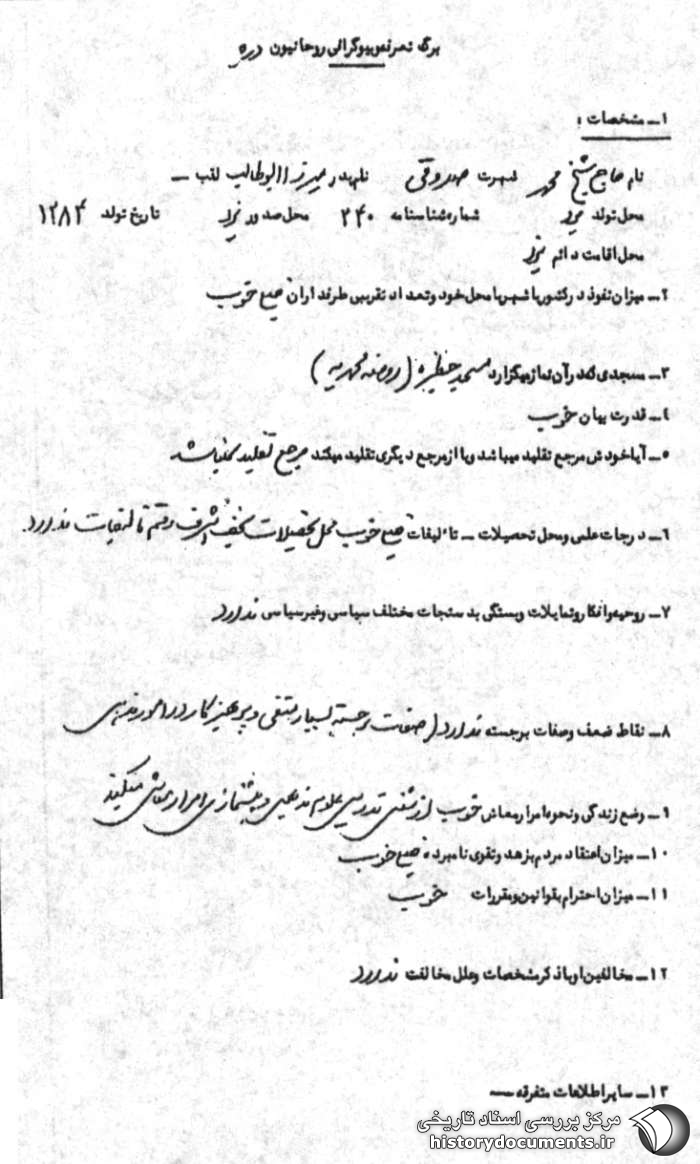 برگ تعرفه بیوگرافی روحانیون درجه
۱ـ مشخصات :
نام حاج شیخ محمد شهرت صدوقی نام پدر میرزا ابوطالب لقب ـ
محل تولد یزد شماره شناسنامه ۲۴۰ محل صدور یزد تاریخ تولد ۱۲۸۴
محل اقامت دائم یزد
۲ـ میزان نفوذ در کشور یا شهر یا محل خود و تعداد تقریبی طرفداران خیلی خوب
۳ـ مسجدی که در آن نماز میگزارد مسجد حظیره (روضه محمدیه)
۴ـ قدرت بیان خوب
۵ـ آیا خودش مرجع تقلید میباشد و یا از مرجع دیگری تقلید میکند مرجع تقلید نمیباشد
۶ـ درجات علمی و محل تحصیلات ـ تألیفات خیلی خوب محل تحصیلات نجف اشرف و قم تألیفات ندارد.
۷ـ روحیه و افکار و تمایلات و بستگی بدستجات مختلف سیاسی و غیر سیاسی ندارد
۸ـ نقاط ضعف و صفات برجسته ندارد (صفات برجسته بسیار متقی و پرهیزکار در امور مذهبی
۹ـ وضع زندگی و نحوه امرار معاش خوب از شغل تدریس علوم مذهبی و پیشنمازی امرار معاش میکند
۱۰ـ میزان اعتقاد مردم بزهد و تقوی نامبرده خیلی خوب
۱۱ـ میزان احترام بقوانین و مقررات خوب
۱۲ـ مخالفین او با ذکر مشخصات و علل مخالفت ندارد
۱۳ـ سایر اطلاعات متفرقه ـ
مرکز بررسی اسناد تاریخی
historydocuments.ir